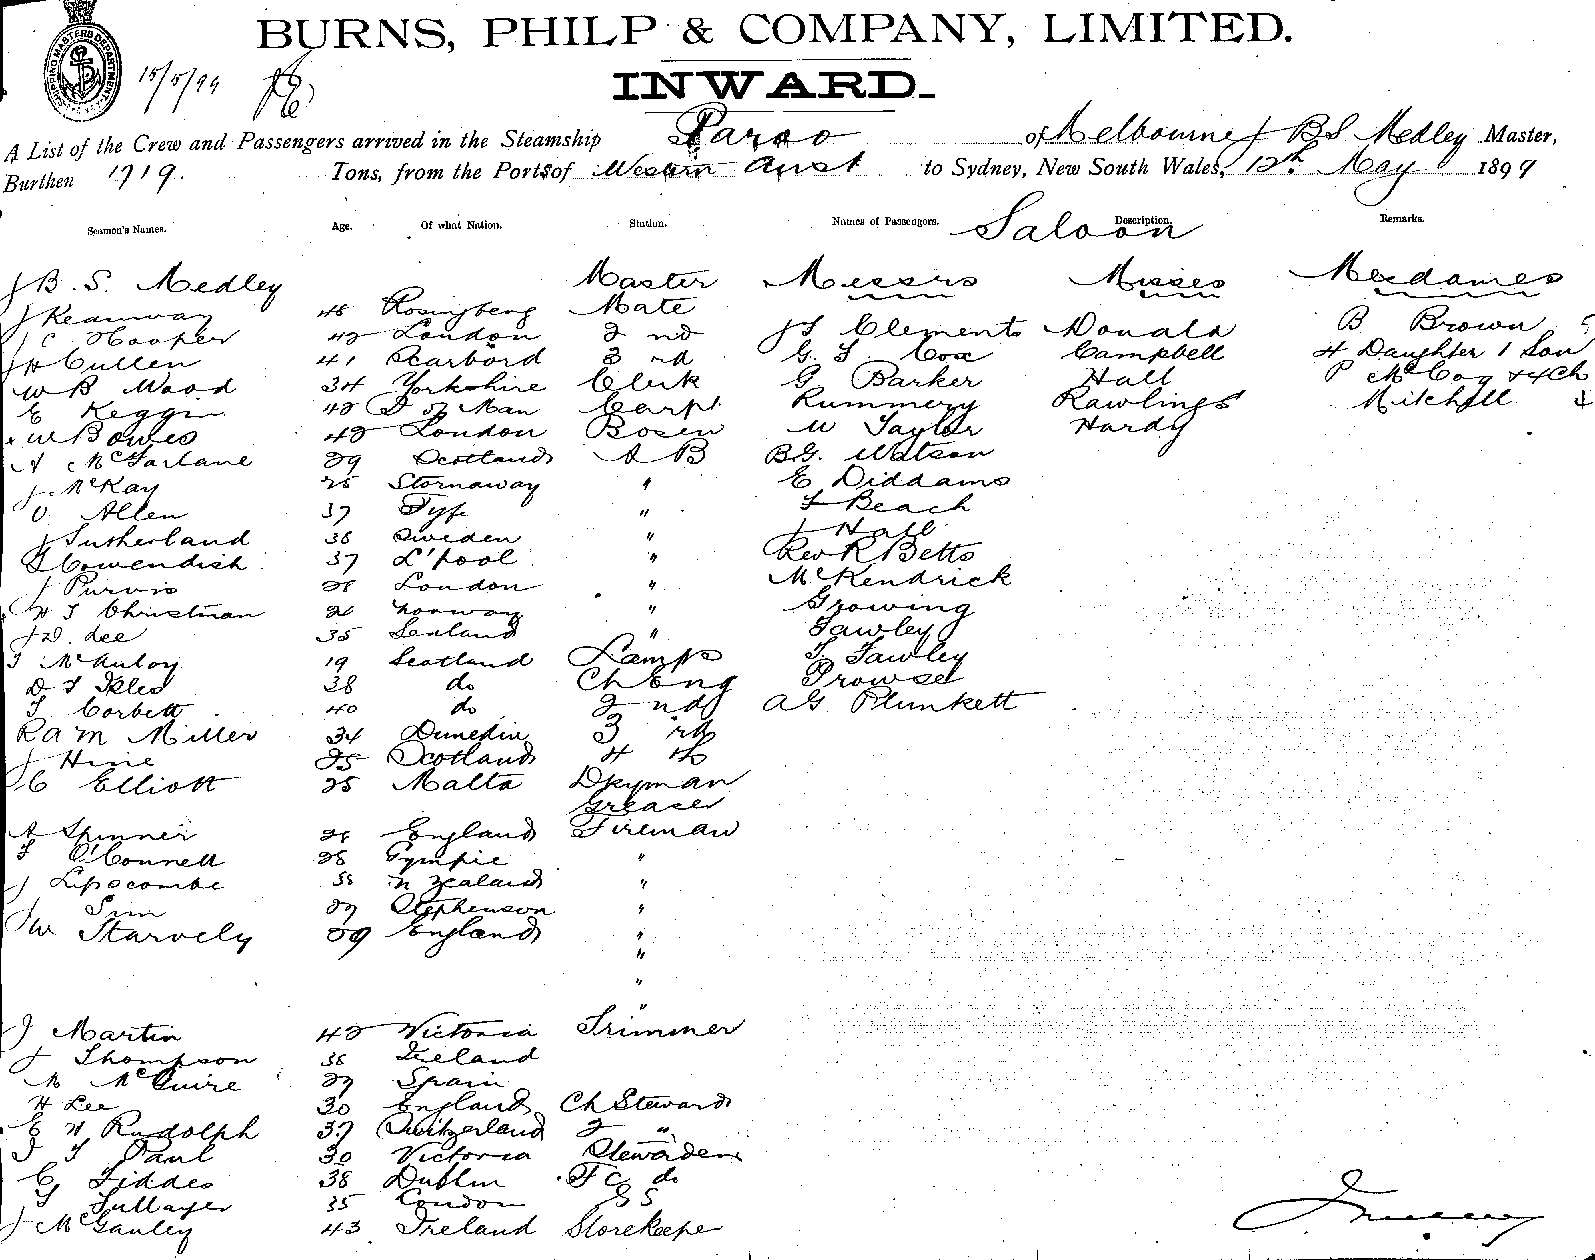 BURNS, PHILP & COMPANY, LIMITED.
15/5/99
INWARD.
A List of the Crew and Passengers arrived in the Steamship Paroo of Melbourne J B S Medley Master,
Burthen 1719. Tons, from the Ports of Western Aust to Sydney, New South Wales, 12th May 1899
Seamen's Names. Age. Of what Nation. Station. Names of Passengers. Saloon Description. Remarks.
J B. S. Medley Master Messrs Misses Mesdames
J Mate
J C Hooper 42 London 2 nd J S Clements Donald B Brown
J H Cullen 41 3 rd G. S Cox Campbell 4 Daughter 1 Son
W B Wood 34 Yorkshire Clerk G Barker Hall P McCoy & 4 Ch
E Keggin 42 I of Man Carpt Rummery Rawlings Mitchell
W Bowes 42 London Bosen W Taylor Hardy
A McFarlane 29 Scotland A B B.G. Watson
J. McKay 25 Stornaway " E Diddams
O Allen 37 Fyfe " F Beach
J Sutherland 36 Sweden " J Hall
Cowendish 37 L'pool " Rev R Betts
J Purvis 28 London " McKendrick
H J Christman 26 Norway " Growing
J W. Lee 35 " Fawley
J McAuloy 19 Scotland Lamps J. Fawley
D J Iles 38 do Ch Eng Prowse
J Corbett 40 do 2 nd A G Plunkett
R A M Miller 34 Dunedin 3 rd
J Hine 25 Scotland 4 th
C Elliott 25 Malta Dkyman
Greaser
A Spinner 26 England Fireman
J O'Connell 28 Gympie "
J Lipscombe 35 N Zealand "
Sim 27 Stephenson "
J W Starvely 29 England "
"
"
"
J Martin 42 Victoria Trimmer
J Thompson 38 Ireland
M McGuire 27 Spain
H Lee 30 England Ch Steward
E H Rudolph 37 Switzerland 2 "
J J Paul 30 Victoria Stewardess
C Fiddes 38 Dublin F C do
J Tullager 35 London S S
J McGanley 43 Ireland Storekeeper